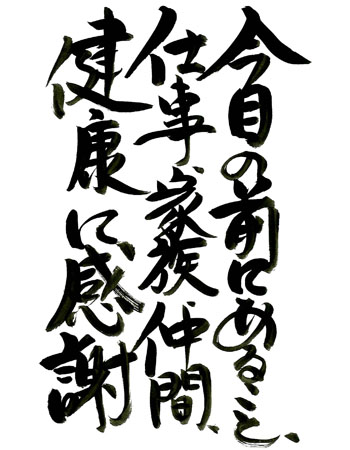 今目の前にあること、
仕事、家族、仲間、
健康に感謝